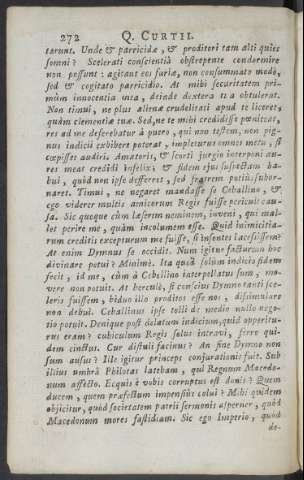 272 Q. CURTII.
tarunt. Unde & parricidæ, & proditori tam alti quies
somni? Scelerati conscientiâ obstrepente condormire
non possunt: agitant eos furiæ, non consummato modò,
sed & cogitato parricidio. At mihi securitatem pri-
mùm innocentia mea, deinde dextera tua obtulerat.
Non timui, ne plus alienæ crudelitati apud te liceret,
quàm clementiæ tuæ. Sed, ne te mihi credidisse pœniteat,
res ad me deferebatur à puero, qui non testem, non pig-
nus indicii exhibere poterat, impleturus omnes metu, si
cœpisset audiri. Amatoris, & scorti jurgio interponi au-
res meas credidi infelix; & fidem ejus suspectam ha-
bui, quòd non ipse deferret, sed fratrem potiùs subor-
naret. Timui, ne negaret mandasse se Ceballino, &
ego viderer multis amicorum Regis fuisse periculi cau-
sa. Sic quoque cùm læserim neminem, inveni, qui mal-
let perire me, quàm incolumem esse. Quid inimicitia-
rum creditis excepturum me fuisse, si insontes lacessissem?
At enim Dymnus se occidit. Num igitur facturum eum
divinare potui? Minimè. Ita quod solùm indicio fidem
fecit, id me, cùm à Ceballino interpellatus sum, mo-
vere non potuit. At herculè, si conscius Dymno tanti sce-
leris fuissem, biduo illo proditos esse nos, dissimulare
non debui. Ceballinus ipse tolli de medio nullo nego-
tio potuit. Denique post delatum indicium, quid operitu-
rus eram? cubiculum Regis solus intravi, ferro qui-
dem cinctus. Cur distuli facinus? An sine Dymno non
sum ausus? Ille igitur princeps conjurationis fuit. Sub
illius umbrâ Philotas latebam, qui Regnum Macedo-
num affecto. Ecquis è vobis corruptus est donis? Quem
ducem, quem præfectum impensiùs colui? Mihi quidem
objicitur, quòd societatem patrii sermonis asperner, quòd
Macedonum mores fastidiam. Sic ego Imperio, quod
de-